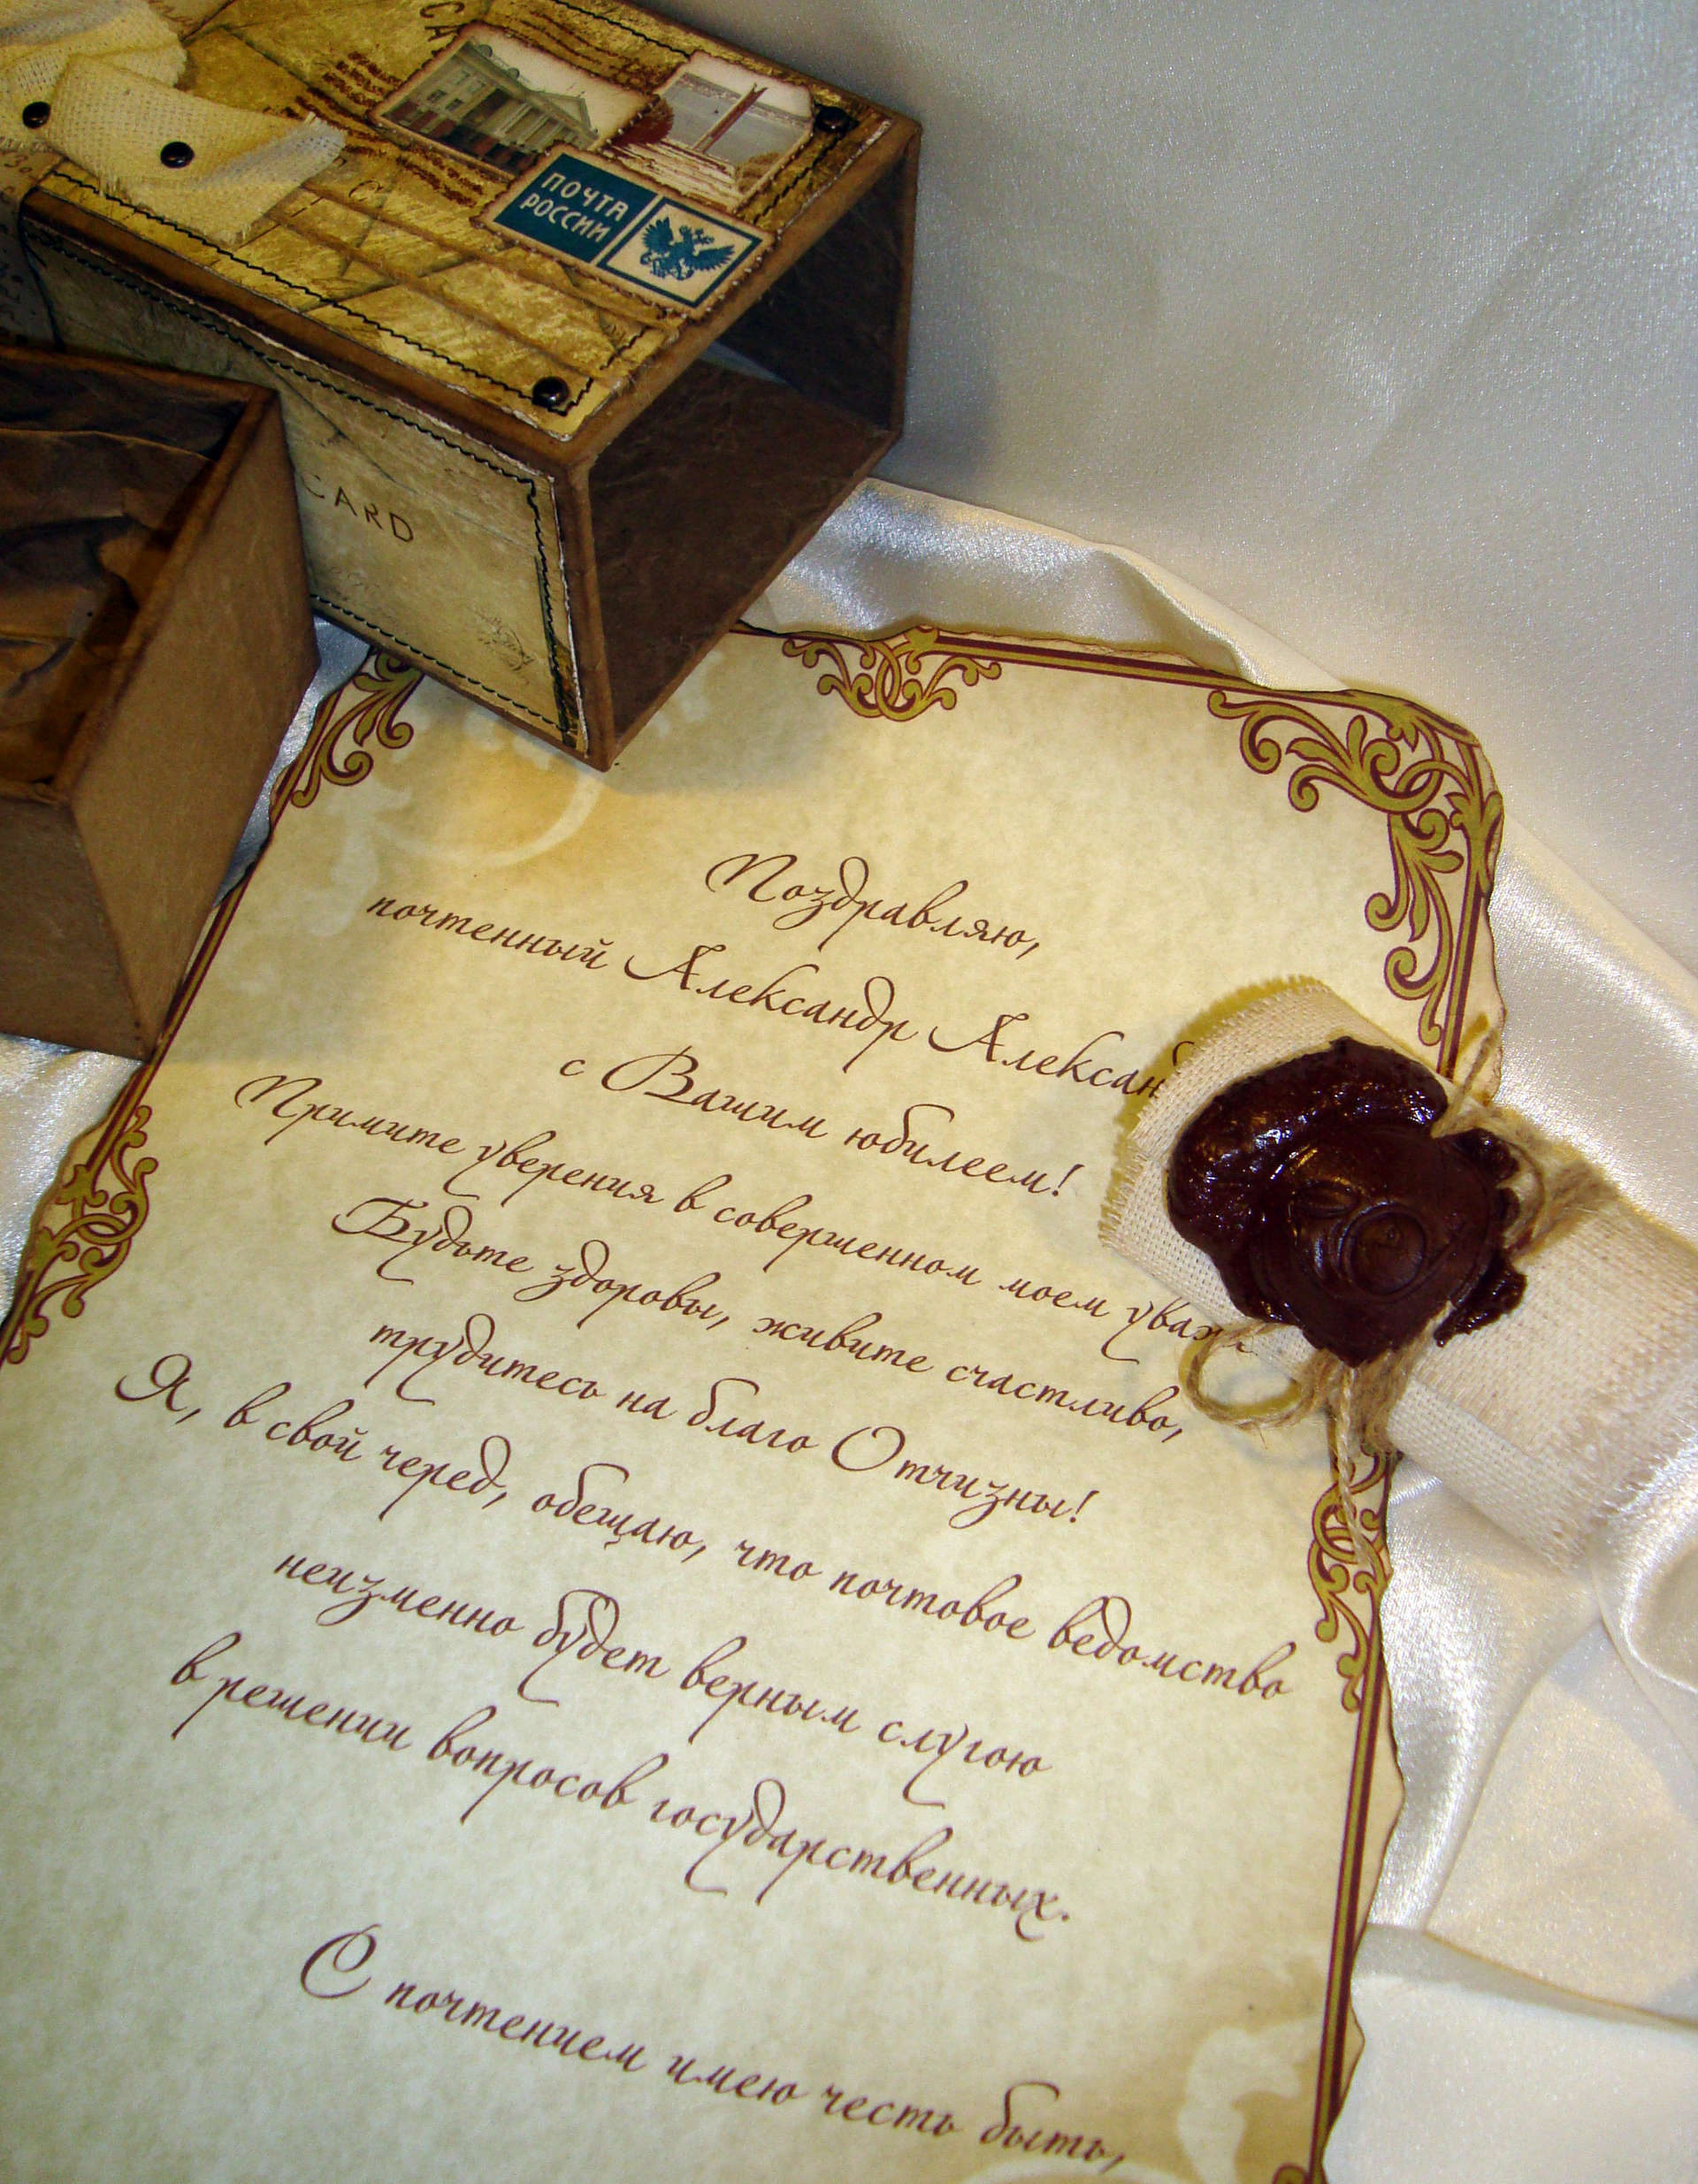 ПОЧТА
РОССИИ
CARD
Поздравляю,
почтенный Александр Алексан
с Вашим юбилеем!
Примите уверения в совершенном моем уваж
Будьте здоровы, живите счастливо,
трудитесь на благо Отчизны!
Я, в свой черед, обещаю, что почтовое ведомство
неизменно будет верным слугою
в решении вопросов государственных.
С почтением имею честь быть,